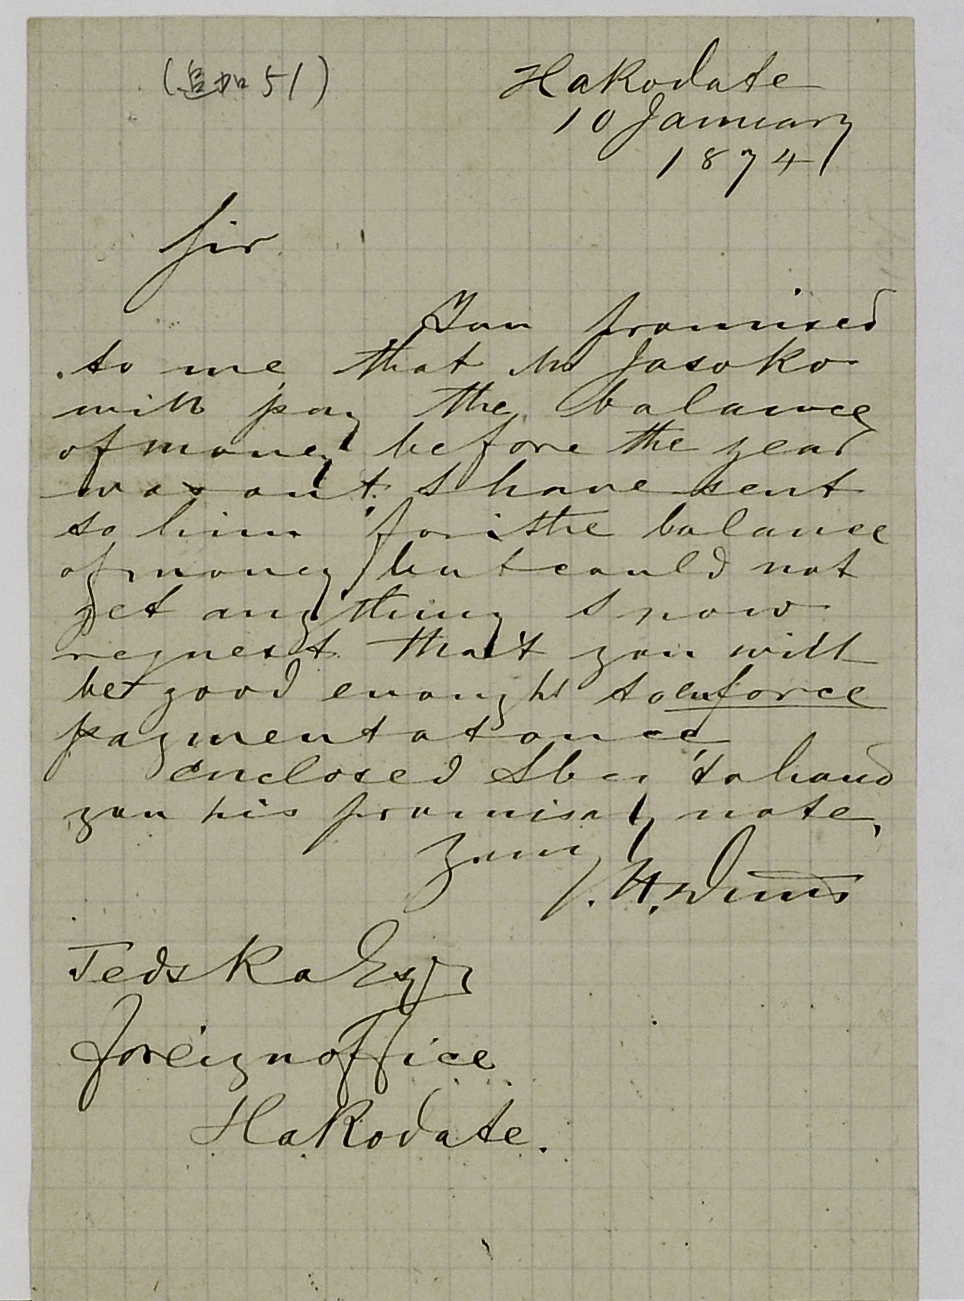 (追加51)
Hakodate
10 January
1874
Sir
You promised
to me that Mr Jasoko
will pay the balance
of money before the year
was out. I have sent
to him for the balance
of money but could not
get anything I now
request that you will
be good enough to enforce
payment at once
Enclosed I beg to hand
you his promisary note,
Yours
J. H. Duus
Tedska Esqr
Foreign office
Hakodate.